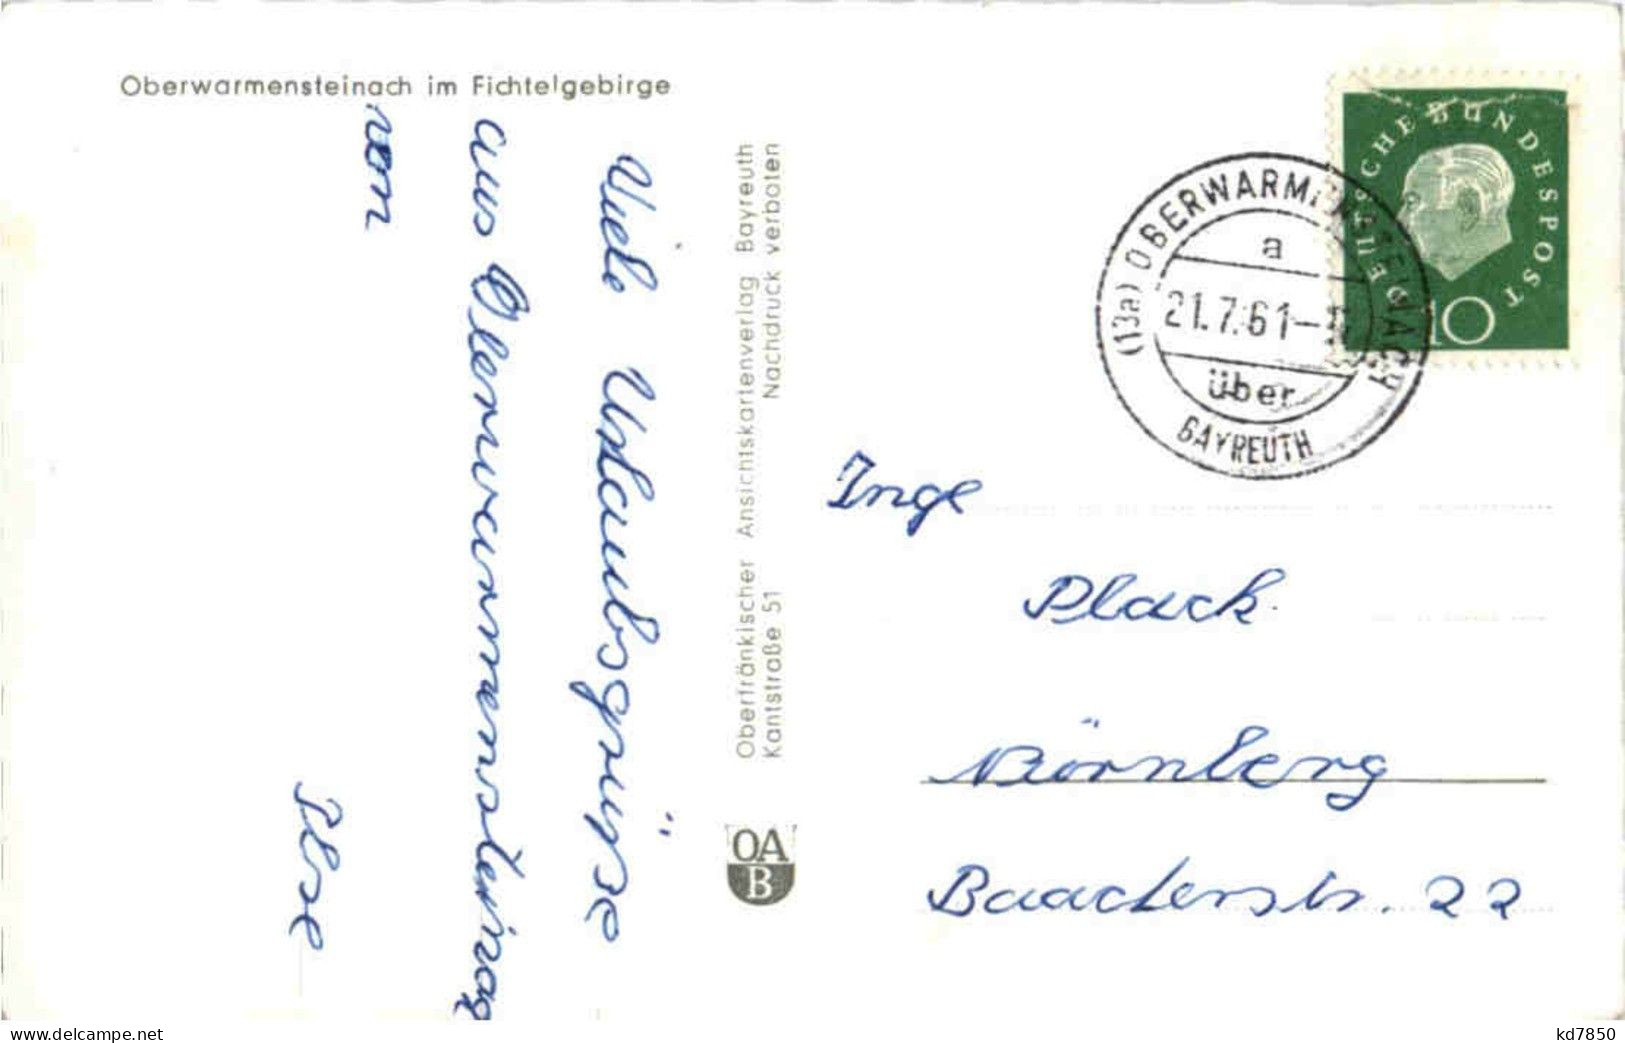 Oberwarmensteinach im Fichtelgebirge
Viele Urlaubsgrüße
aus Oberwarmensteinag
von
Ilse
Oberfränkischer Ansichtskartenverlag Bayreuth
Kantstraße 51 Nachdruck verboten
OA
B
DEUTSCHE BUNDESPOST
10
(13a) OBERWARMENSTEINACH
a
21.7.61
über
BAYREUTH
Inge
Plack
Nürnberg
22
www.delcampe.net
kd7850